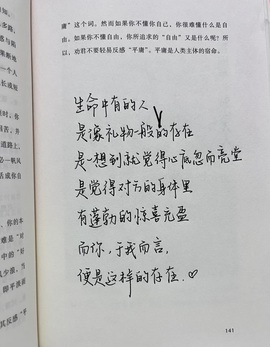 庸”这个词。然而如果你不懂你自己，你很难懂什么是自
由。如果你不懂自由，你所追求的“自由”又是什么呢？所
以，劝君不要轻易反感“平庸”。平庸是人类主体的宿命。
生命中有的人
是像礼物一般的存在
是一想到就觉得心底忽而亮堂
是觉得对方的身体里
有蓬勃的惊喜充盈
而你，于我而言，
便是这样的存在.♡
141